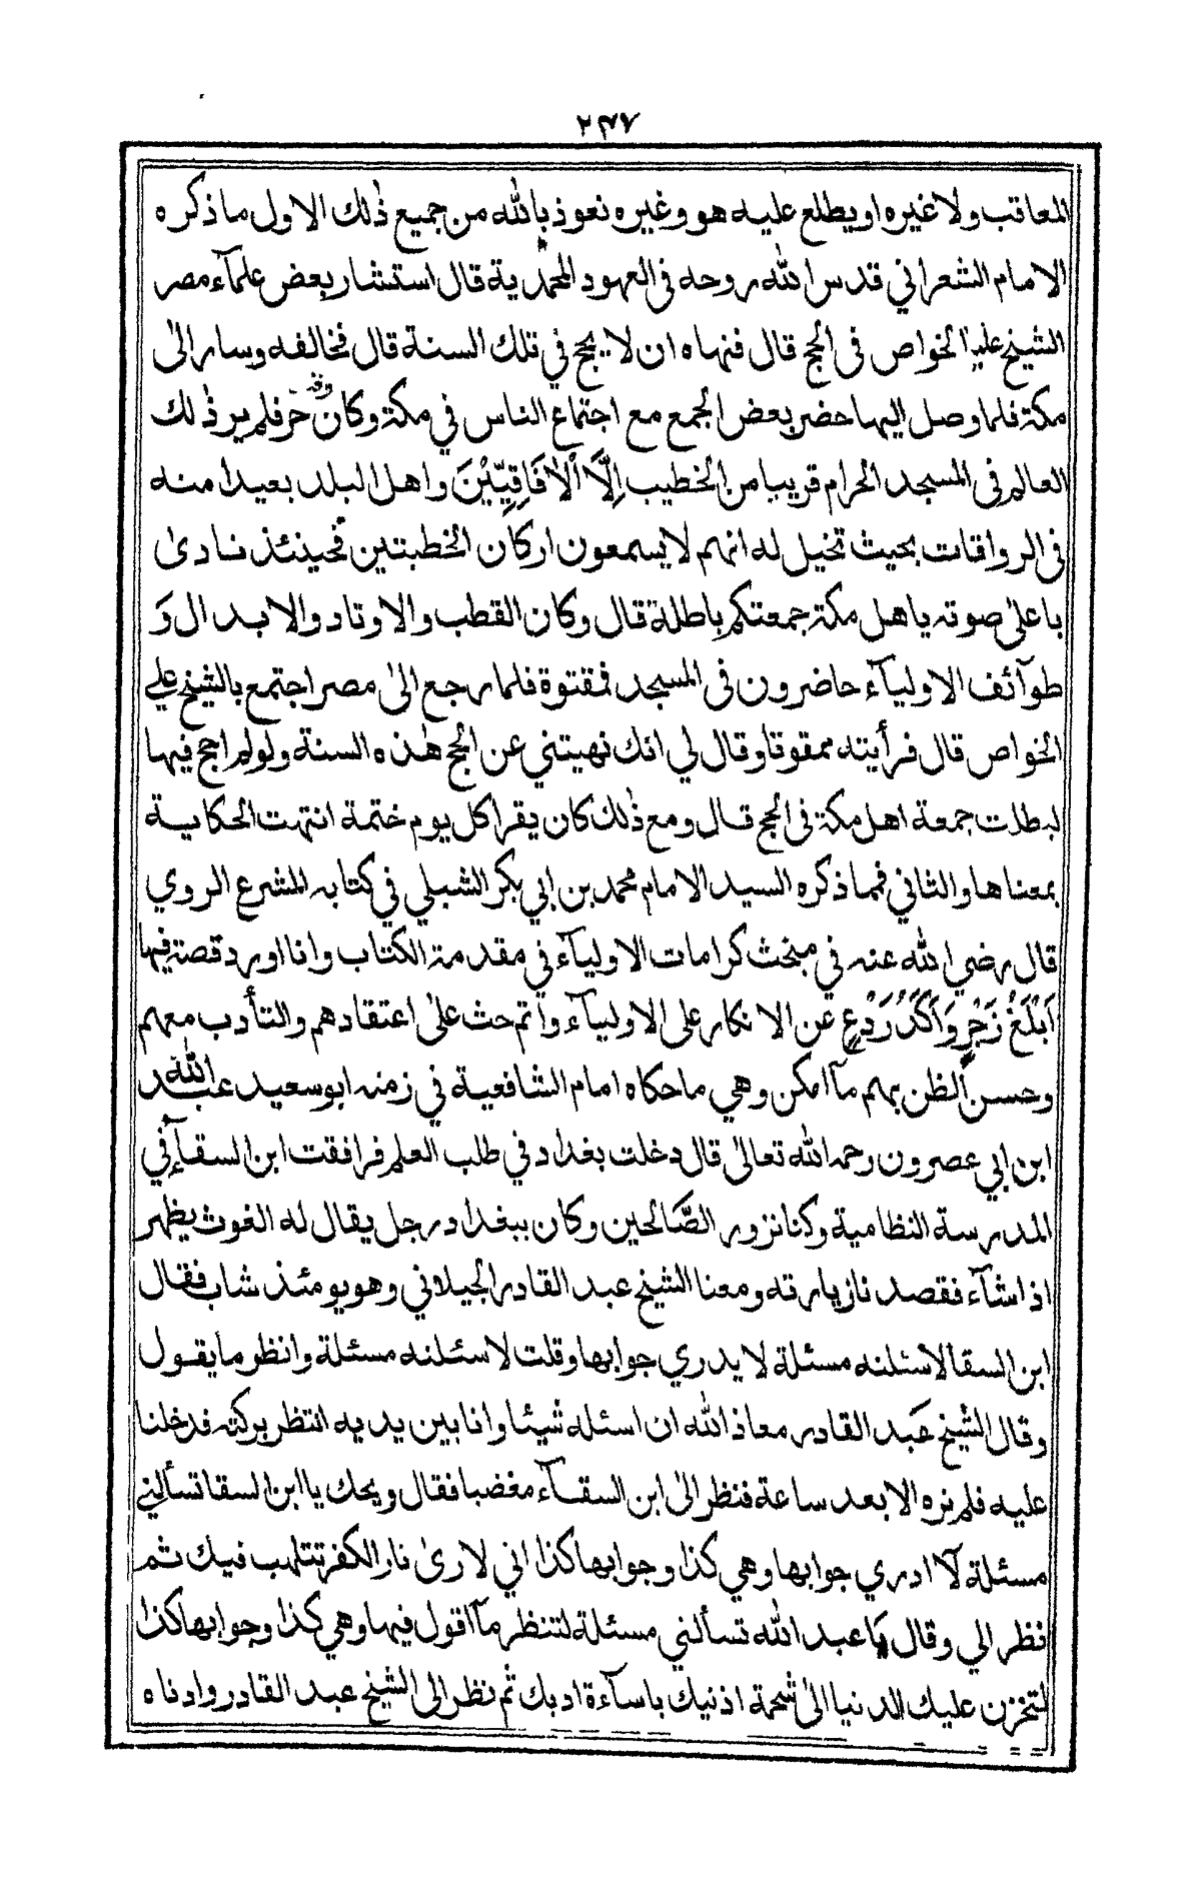 ٢٤٧
المعاقب ولا غيره او يطلع عليه هو وغيره نعوذ بالله من جميع ذٰلك الاول ما ذكره
الامام الشعراني قدس الله روحه في العهود المحمدية قال استشار بعض علمآء مصر
الشيخ عليا الخواص في الحج قال فنهاه ان لا يحج في تلك السنة قال فخالفه وسار الىٰ
مكة فلما وصل اليها حضر بعض الجمع مع اجتماع الناس في مكة وكان حر فلم ير ذٰلك
العالم في المسجد الحرام قريبا من الخطيب اِلَّا الْاٰفَاقِيِّيْنَ واهل البلد بعيدا منه
في الرواقات بحيث تخيل له انهم لا يسمعون اركان الخطبتين فحينئذ نادىٰ
باعلىٰ صوته ياهل مكة جمعتكم باطلة قال وكان القطب والاوتاد والابدال وَ
طوآئف الاوليآء حاضرون في المسجد فمقتوة فلما رجع الىٰ مصر اجتمع بالشيخ علي
الخواص قال فرأيته ممقوتا وقال لي انك نهيتني عن الحج هٰذه السنة ولو لم احج فيها
لبطلت جمعة اهل مكة في الحج قال ومع ذٰلك كان يقرا كل يوم ختمة انتهت الحكاية
بمعناها والثاني فما ذكره السيد الامام محمد بن ابي بكر الشبلي في كتابه المشرع الروي
قال رضي الله عنه في مبحث كرامات الاوليآء في مقدمة الكتاب وانا اورد قصة فيها
اَبْلَغُ زَجْرٍ وَاَكَدُ رَدْعٍ عن الانكار على الاوليآء واتم حث علىٰ اعتقادهم والتأدب معهم
وحسن الظن بهم مآ امكن وهي ما حكاه امام الشافعية في زمنه ابو سعيد عبد الله
ابن ابي عصرون رحمه الله تعالىٰ قال دخلت بغداد في طلب العلم فرافقت ابن السقآء في
المدرسة النظامية وكنا نزور الصَّالحين وكان ببغداد رجل يقال له الغوث يظهر
اذا شآء فقصدنا زيارته ومعنا الشيخ عبد القادر الجيلاني وهو يومئذ شاب فقال
ابن السقا لاسئلنه مسئلة لا يدري جوابها وقلت لاسئلنه مسئلة وانظر ما يقول
وقال الشيخ عَبد القادر معاذ الله ان اسئله شيئا وانا بين يديه انتظر بركته فدخلنا
عليه فلم نره الا بعد ساعة فنظر الىٰ ابن السقآء مغضبا فقال ويحك يا ابن السقا تسألني
مسئلة لآ ادري جوابها وهي كذا وجوابها كذا اني لارىٰ نار الكفر تتلهب فيك ثم
نظر الي وقال يَا عبد الله تسألني مسئلة لتنظر مآ اقول فيها وهي كذا وجوابها كذا
لتخزن عليك الدنيا الىٰ شحمة اذنيك باسآءة ادبك ثم نظر الى الشيخ عبد القادر وادناه